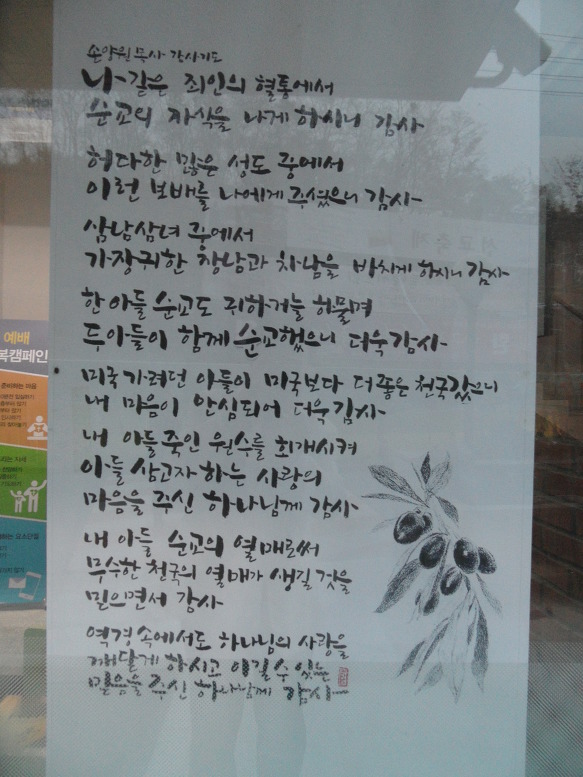 손양원 목사 감사기도
나 같은 죄인의 혈통에서
순교의 자식을 나게 하시니 감사
허다한 많은 성도 중에서
이런 보배를 나에게 주셨으니 감사
삼남삼녀 중에서
가장 귀한 장남과 차남을 바치게 하시니 감사
한 아들 순교도 귀하거늘 허물며
두 아들이 함께 순교했으니 더욱 감사
미국 가려던 아들이 미국보다 더 좋은 천국 갔으니
내 마음이 안심되어 더욱 감사
내 아들 죽인 원수를 회개시켜
아들 삼고자 하는 사랑의
마음을 주신 하나님께 감사
내 아들 순교의 열매로써
무수한 천국의 열매가 생길 것을
믿으면서 감사
역경 속에서도 하나님의 사랑을
깨닫게 하시고 이길 수 있는
믿음을 주신 하나님께 감사
예배
복캠페인